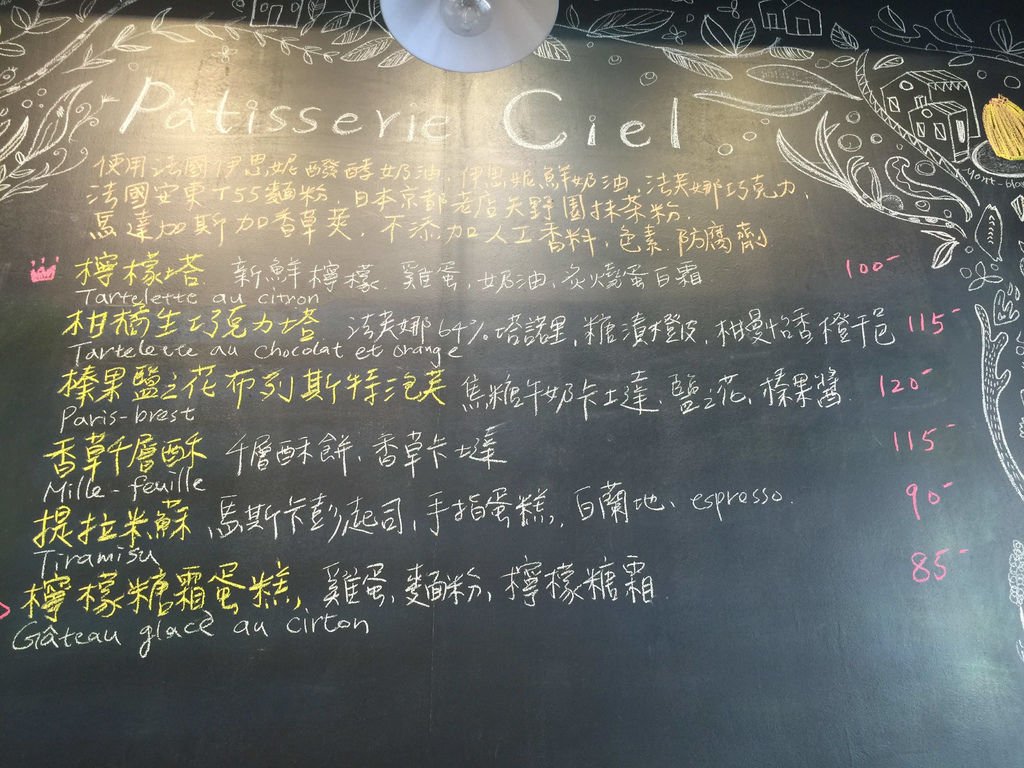 Pâtisserie Ciel
使用法國伊思妮醱酵奶油,伊思妮鮮奶油,法芙娜巧克力,
法國安東T55麵粉,日本京都老店矢野園抹茶粉,
馬達加斯加香草莢,不添加人工香料,色素 防腐劑
檸檬塔 新鮮檸檬.雞蛋,奶油,炙燒蛋白霜 100-
Tartelette au citron
柑橘生巧克力塔 法芙娜64%塔諾里,糖漬橙皮,柑曼怡香橙干邑 115-
Tartelette au chocolat et orange
榛果鹽之花布列斯特泡芙 焦糖牛奶卡士達、鹽之花、榛果醬. 120-
Paris-brest
香草千層酥 千層酥餅、香草卡士達 115-
Mille-feuille
提拉米蘇 馬斯卡彭起司,手指蛋糕,白蘭地、espresso. 90-
Tiramisu
檸檬糖霜蛋糕, 雞蛋,麵粉,檸檬糖霜. 85-
Gâteau glacé au cirton